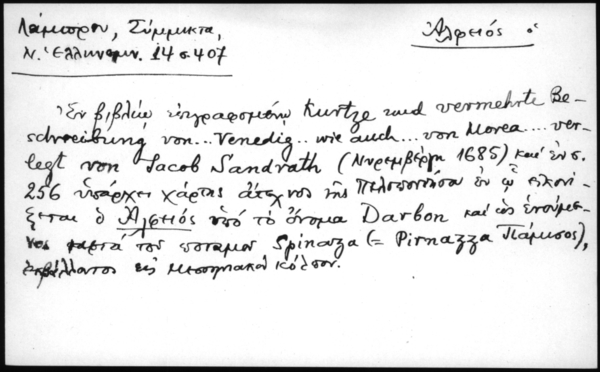 Λάμπρου, Σύμμικτα,
Ν. Ἑλληνομν. 14 σ. 407
Ἀλφειός ὁ
Ἐν βιβλίῳ ἐπιγραφομένῳ Kurtze und vermehrte Be-
schreibung von... Venedig.. wie auch... von Morea.... ver-
legt von Jacob Sandrath (Νυρεμβέργῃ 1685) καὶ ἐν σ.
256 ὑπάρχει χάρτης ἄτεχνος τῆς Πελοποννήσου ἐν ᾧ εἰκονί-
ζεται ὁ Ἀλφειός ὑπὸ τὸ ὄνομα Darbon καὶ ὡς ἑνούμε-
νος μετὰ τοῦ ποταμοῦ Spinazza (= Pirnazza Πάμισος),
ἐκβάλλοντος εἰς Μεσσηνιακὸν κόλπον.